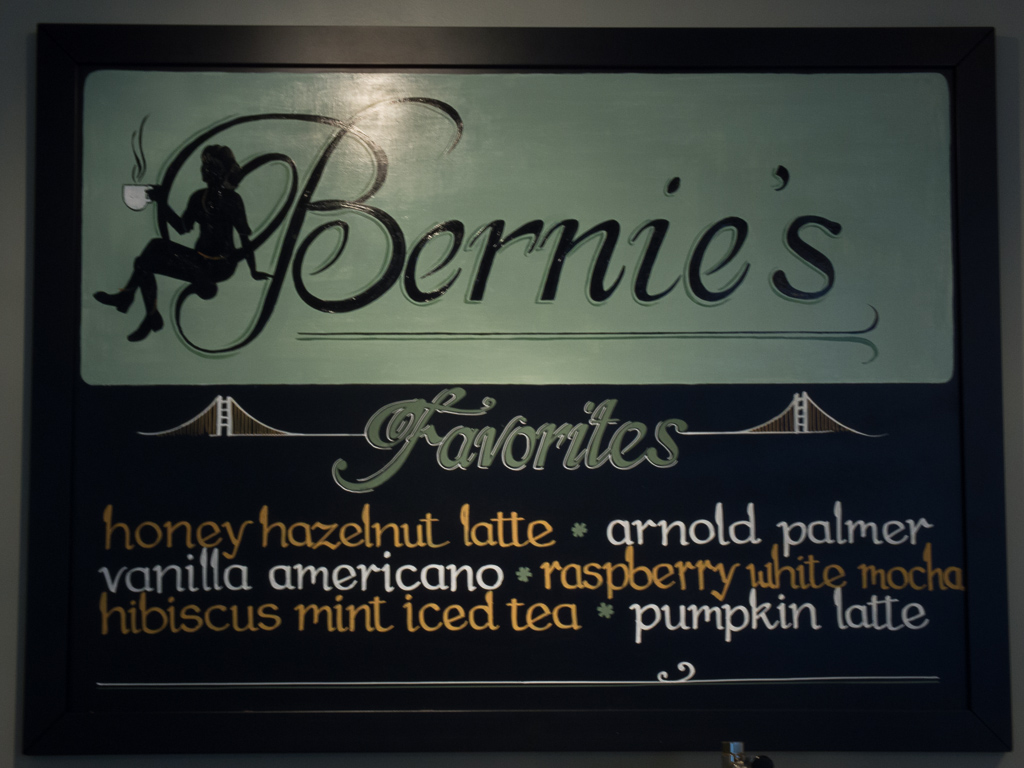 Bernie's
Favorites
honey hazelnut latte * arnold palmer
vanilla americano * raspberry white mocha
hibiscus mint iced tea * pumpkin latte